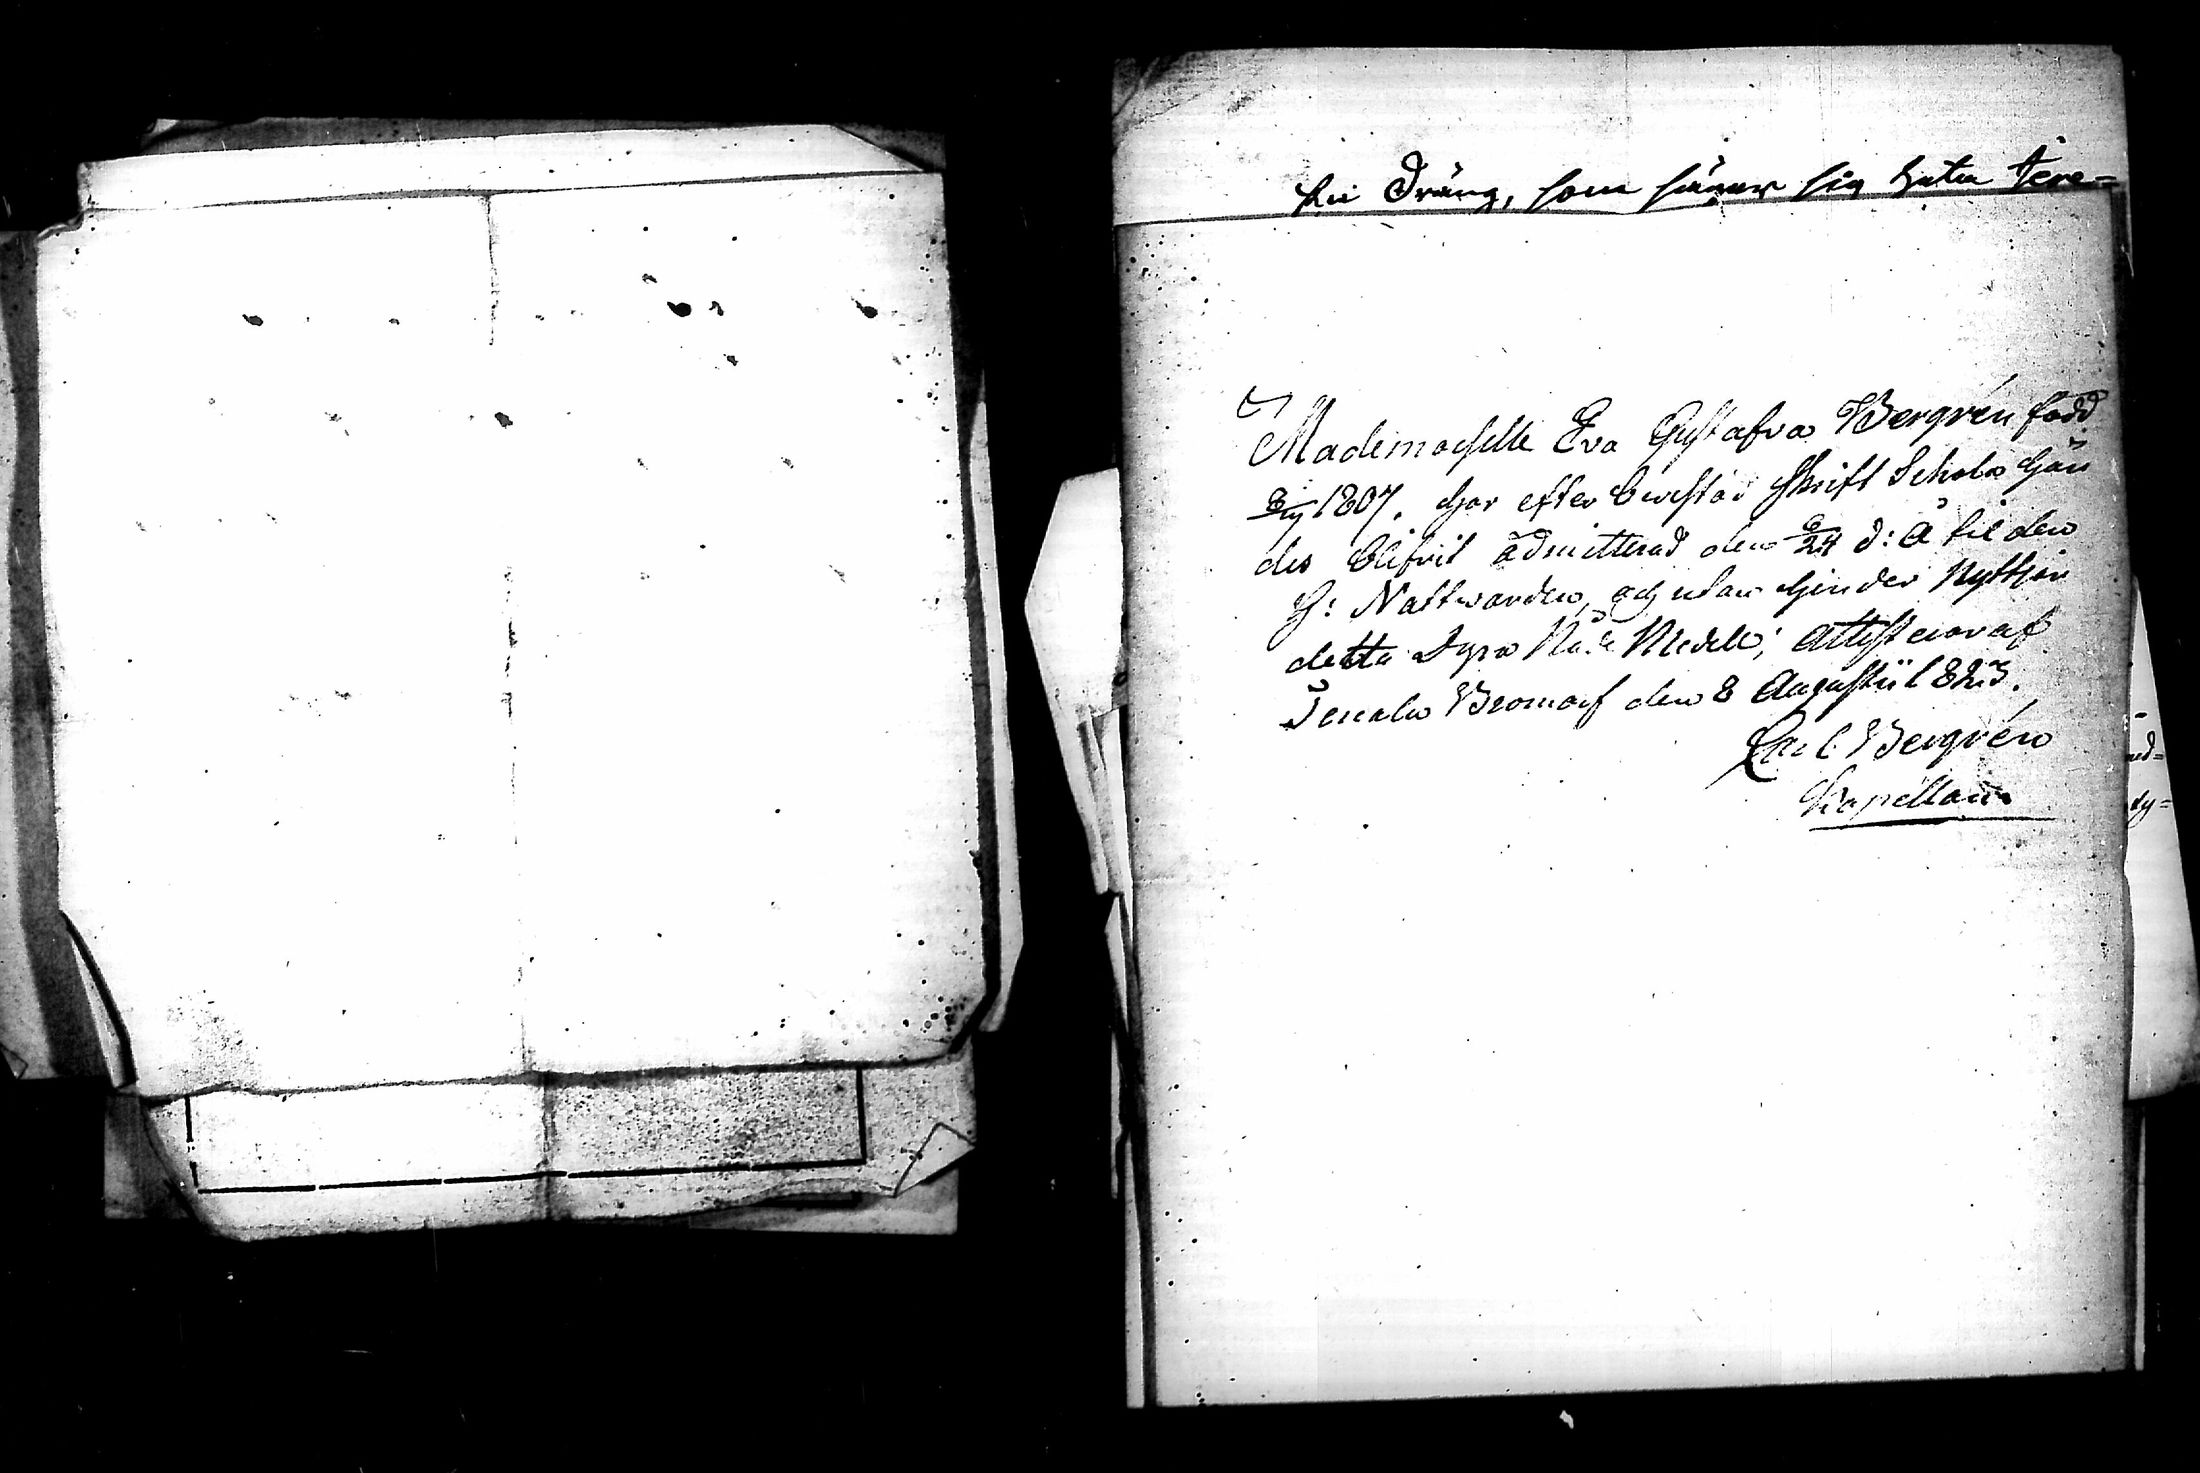 Dräng, som säger sig heta Jere=
Mademoiselle Eva Gustafva Bergrén född
1807. har efter bevistad Skrift Schola här
des blifvit admitterad den 8/24 d: å til den
H: Nattwarden, och utan hinder Nyttjar
detta Dyra Nåde Medel; Attesteras af
Tenala Bromarf den 8 Augustii 1823.
Carl Bergrén
Kapellan